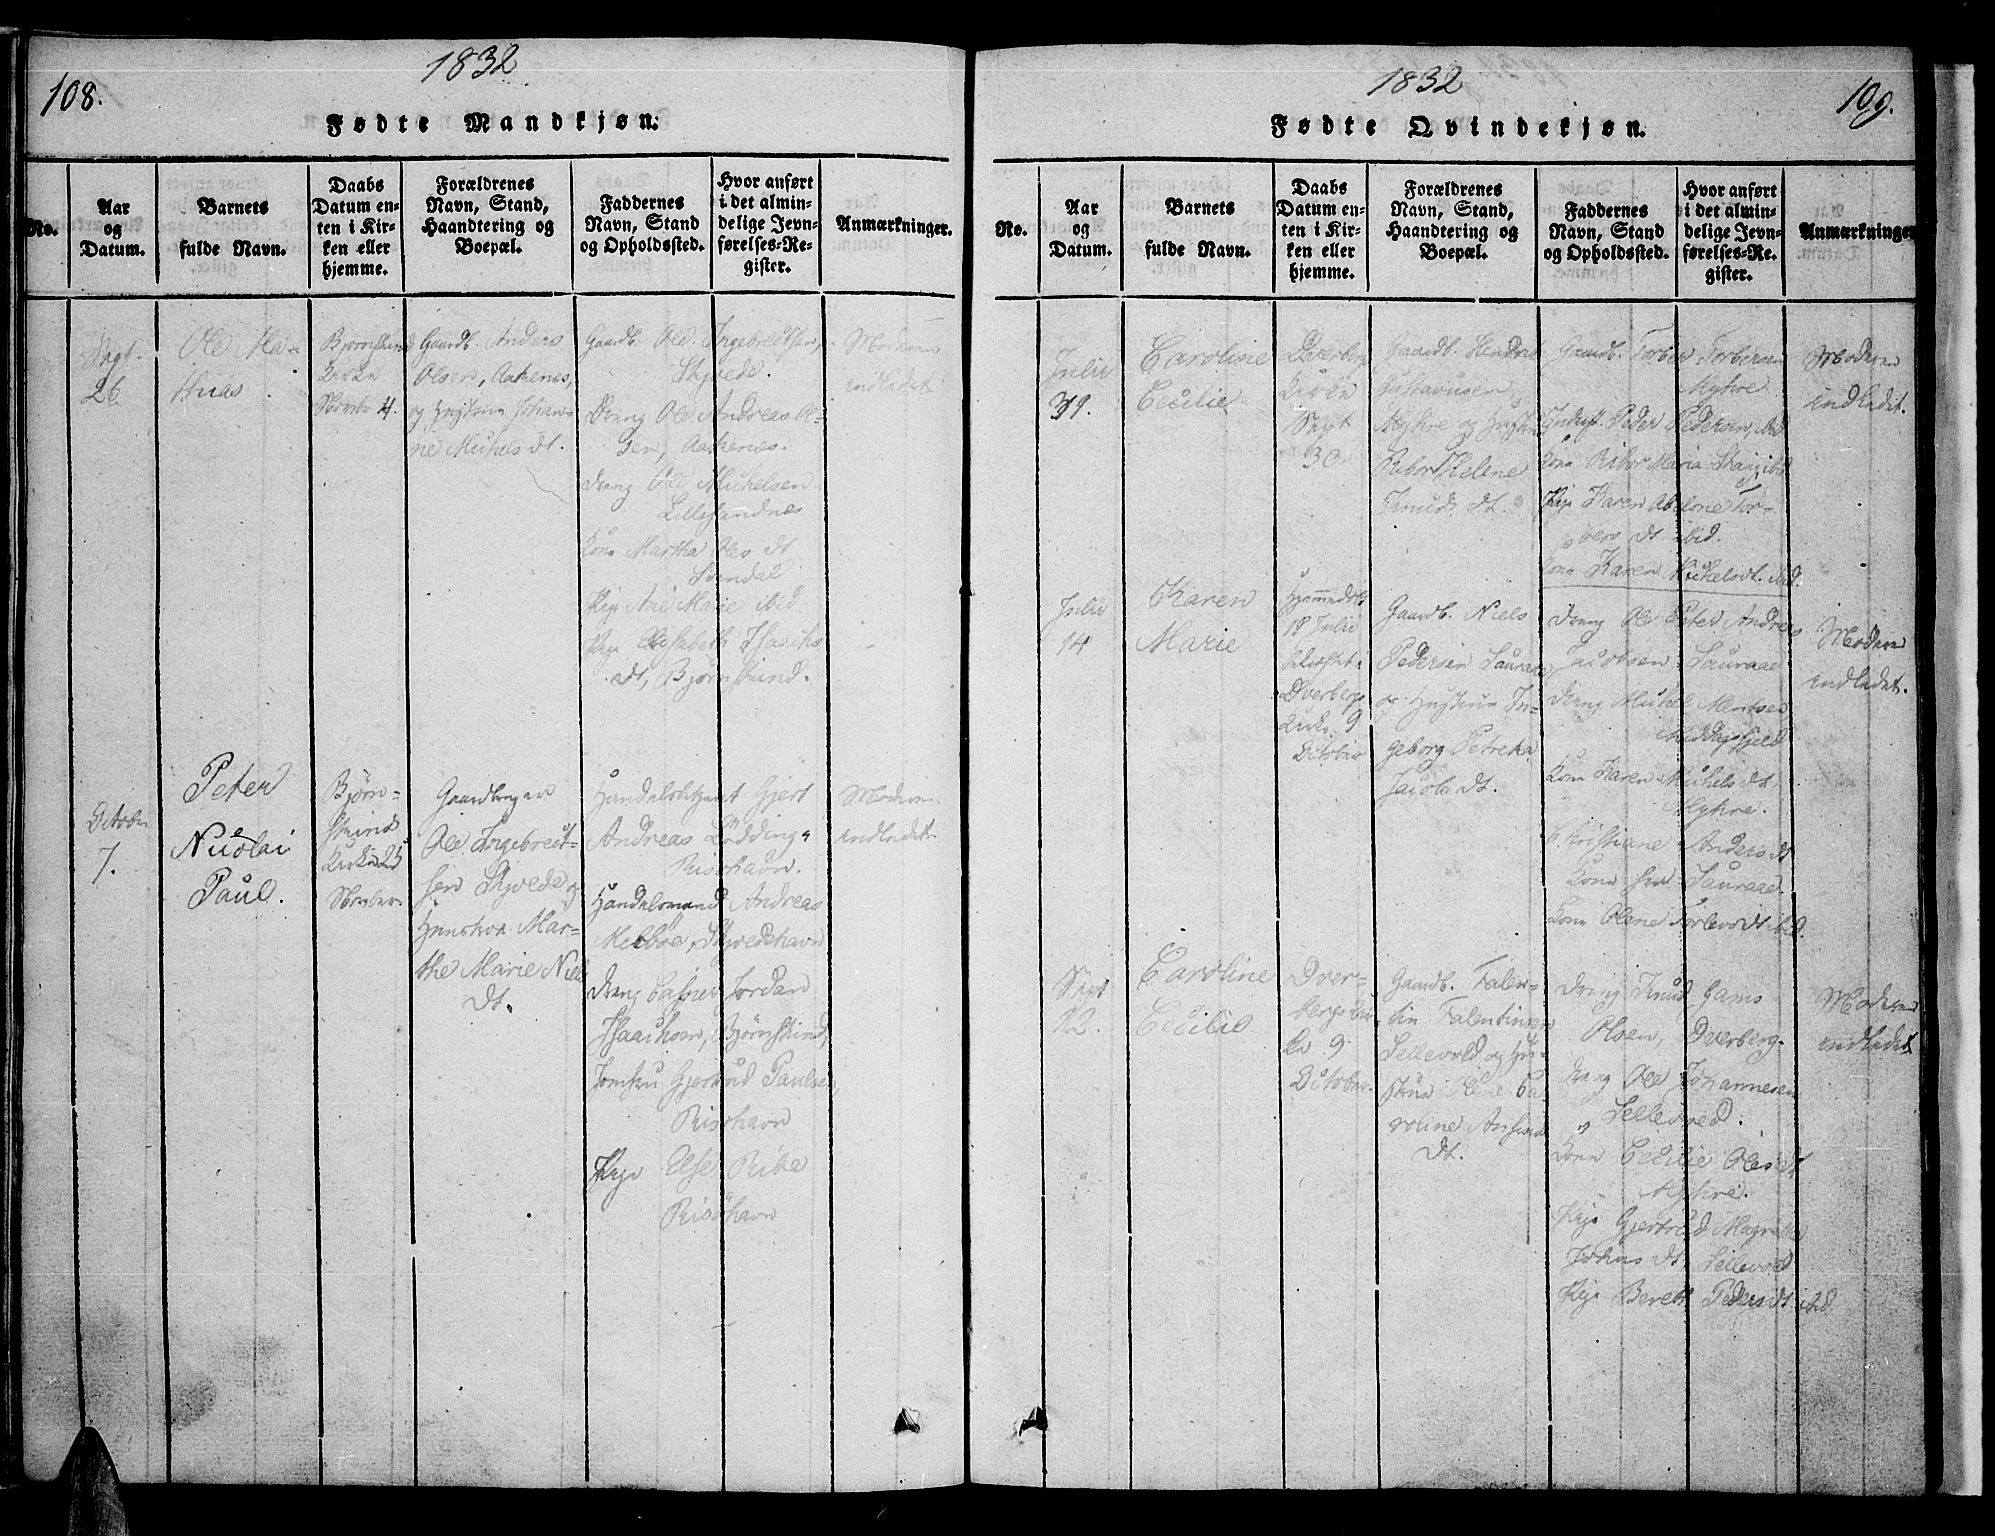 108.
1832
Fødte Mandkjøn.
No.
Aar
og
Datum.
Barnets
fulde Navn.
Daabs
Datum en-
ten i Kir-
ken eller
hjemme.
Forældrenes
Navn, Stand,
Haandtering og
Boepæl.
Faddernes
Navn, Stand
og Opholdssted.
Hvor anført
i det almin-
delige Jevn-
førelses-Re-
gister.
Anmærkninger.
Sept.
26
Ole Ma-
thias
Bjørnskind
Kirke
Novbr 4.
Gaardb. Anders
Olsen, Aaknes,
og Hustrue Johan-
ne Michels dt.
Gaardb. Ole Ingebrectsen,
Skjvede.
Dreng Ole Andreas Ol-
sen, Aaknes.
dreng Ole Michelsen
Kone Martha Oles dt
Pige Ane Marie ibid.
Pige Elisabeth Isachs
dt, Bjørnskind.
Moderen
indledet
October
7.
Peter
Nicolai
Paul.
Bjørn-
skind
Kirke 25
Novber
Gaardbruger
Ole Ingebrect-
sen Skjvede og
Hunstrue Mar-
the Marie Niels
dt.
Handelsbetjent Gjert
Andreas Lödding,
Risøhavn.
Handelsmand Andreas
Melbøe, Skjvedehavn
dreng Casper Jordan
Isaachsen, Bjørnskind,
Jomfru Gjertrud Paulsen,
Risøhavn
Pige Else Ribe
Risöhavn
Moderen
indledet.
1832
109.
Fødte Qvindekjøn.
No.
Aar
og
Datum.
Barnets
fulde Navn.
Daabs
Datum en-
ten i Kir-
ken eller
hjemme.
Forældrenes
Navn, Stand,
Haandtering og
Boepæl.
Faddernes
Navn, Stand
og Opholdssted.
Hvor anført
i det almin-
delige Jevn-
førelses-Re-
gister.
Anmærkninger
Julii
Caroline
Cecilie
Dverberg
Kirke
Sept
30.
Gaardb. Hendrik
Gustavusen,
Myhre og Hustru
Helene
Knuds dt.
Gaardb. Torber Torbersen
Myhre
Peder Pedersen, ibid
Kone Maria ibid
Pige Karen Abelone Tor-
bers dt ibid.
Kone Karen Michelsdt. ibid.
Moderen
indledet.
Julii
14
Karen
Marie
Hjemmedøbt
18 Julii
Dverbergs
Kirke 9
October
Gaardb. Niels
Pedersen Sauraae
og Hustrue In-
geborg Petreka
Jacobs dt.
Dreng Ole Peter Andreas
Jacobsen Sauraae
dreng Michel Mentsen
Kone Karen Michels dt,
Myhre.
Christiane Anders dt
Kone fra Sauraae.
Kone Olene Torlevs dt ibid.
Moderen
indledet.
Sept
12.
Caroline
Cecilie
Dver-
bergs Kir-
ke 9
October.
Gaardb. Falen-
tin Falentinsen
Sellevold og Hu-
strue Olene Ca-
roline
dt.
Dreng Knud Gams
Olsen, Dverberg.
dreng Ole Johannesen
Kone Cecilie Oles dt
Myhre.
Pige Gjertrud Magrethe
Johns dt, Sellevold
Pige Bereth Peders dt ibid
Moderen
indledet.